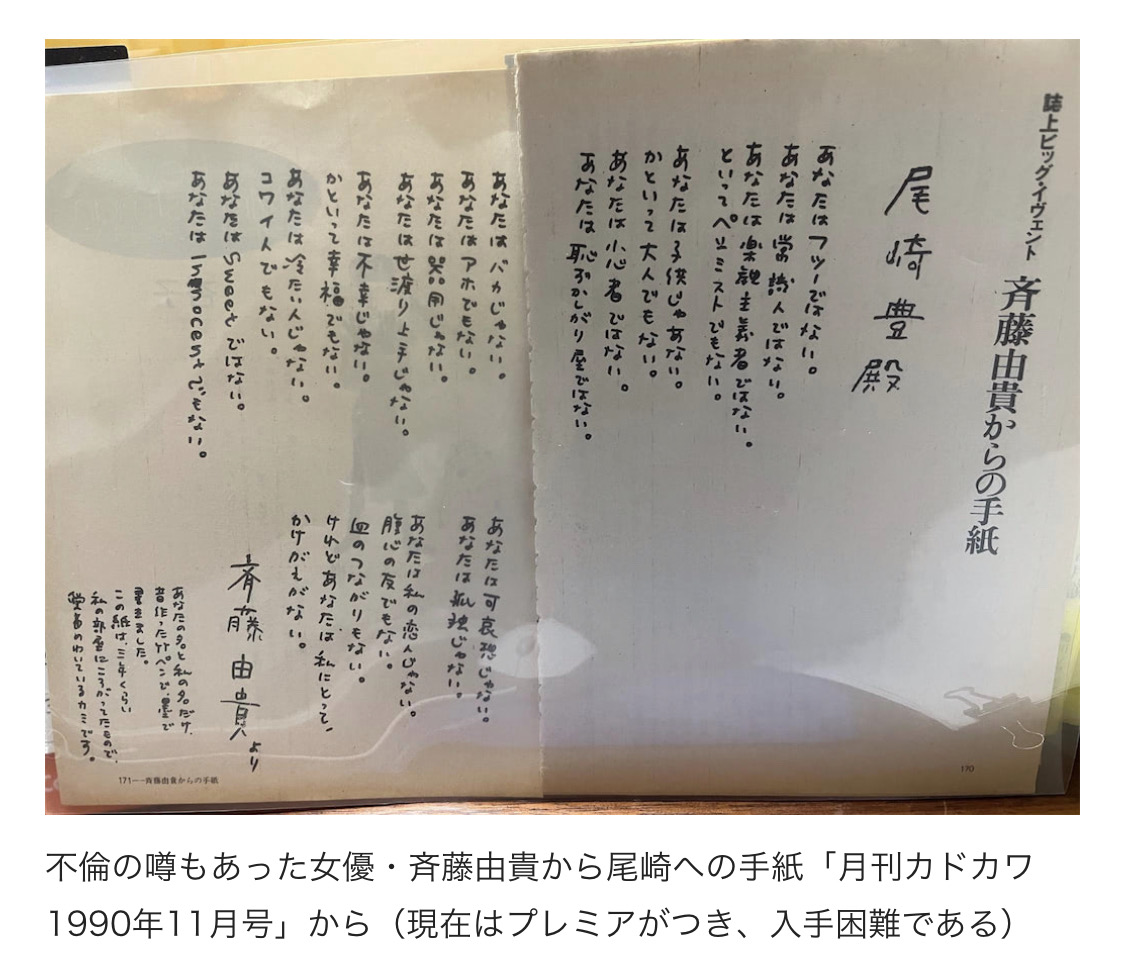 誌上ビッグ・イヴェント
斉藤由貴からの手紙
尾崎豊殿
あなたはフツーではない。
あなたは常識人ではない。
あなたは楽観主義者ではない。
といってペシミストでもない。
あなたは子供じゃあない。
かといって大人でもない。
あなたは小心者ではない。
あなたは恥ずかしがり屋ではない。
170
あなたはバカじゃない。
あなたはアホでもない。
あなたは器用じゃない。
あなたは世渡り上手じゃない。
あなたは不幸じゃない。
かといって幸福でもない。
あなたは冷たい人じゃない。
コワイ人でもない。
あなたはSweetではない。
あなたはInnocentでもない。
あなたは可哀想じゃない。
あなたは孤独じゃない。
あなたは私の恋人じゃない。
腹心の友でもない。
血のつながりもない。
けれどあなたは私にとって、
かけがえがない。
斉藤由貴より
あなたの名と私の名だけ、
昔作った竹ペンで、墨で
書きました。
この紙は、三年くらい
私の部屋にころがってたもので、
愛着のわいているカミです。
171——斉藤由貴からの手紙
不倫の噂もあった女優・斉藤由貴から尾崎への手紙「月刊カドカワ
1990年11月号」から（現在はプレミアがつき、入手困難である）